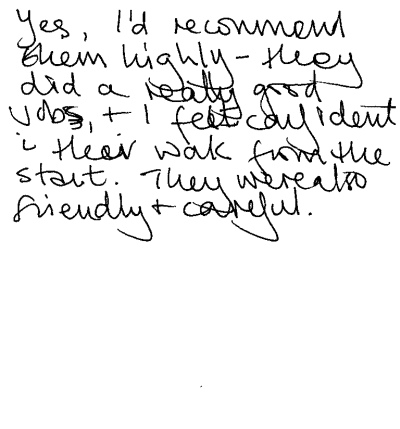 Yes, I'd recommend
them highly - they
did a really good
job, + I felt confident
i their work from the
start. They were also
friendly + careful.